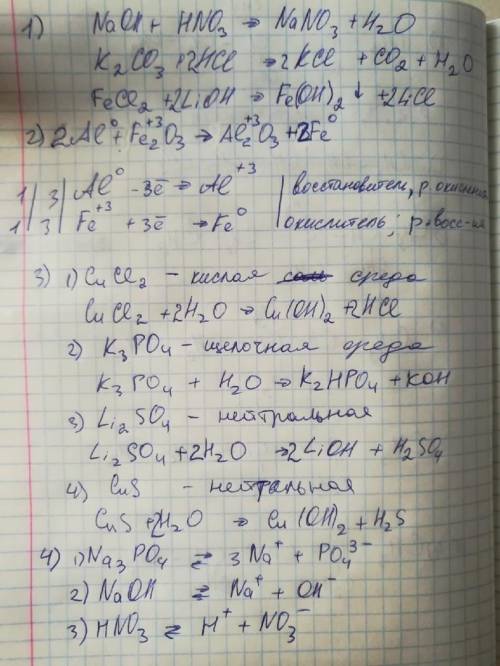 1) NaOH + HNO₃ → NaNO₃ + H₂O
K₂CO₃ + 2HCl → 2KCl + CO₂ + H₂O
FeCl₂ + 2LiOH → Fe(OH)₂ ↓ + 2LiCl
2) 2Al⁰ + Fe₂⁺³O₃ → Al₂⁺³O₃ + 2Fe⁰
1 | 3 | Al⁰ - 3e̅ → Al⁺³ | восстановител, р. окисления
1 | 3 | Fe⁺³ + 3e̅ → Fe⁰ | окислитель; р. восс-ия
3) 1) CuCl₂ – кислая среда
CuCl₂ + 2H₂O → Cu(OH)₂ + 2HCl
2) K₃PO₄ – щелочная среда
K₃PO₄ + H₂O → K₂HPO₄ + KOH
3) Li₂SO₄ – нейтральная
Li₂SO₄ + 2H₂O → 2LiOH + H₂SO₄
4) CuS – нейтральная
CuS + 2H₂O → Cu(OH)₂ + H₂S
4) 1) Na₃PO₄ ⇄ 3Na⁺ + PO₄³⁻
2) NaOH ⇄ Na⁺ + OH⁻
3) HNO₃ ⇄ H⁺ + NO₃⁻